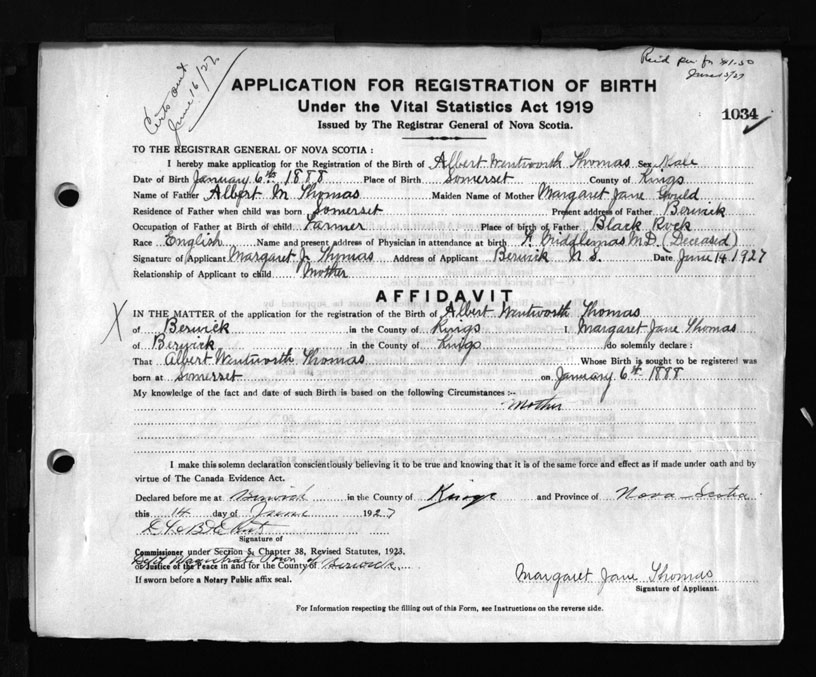 Certs sent
June 16/27
Paid per fn $1.50
June 15/27
APPLICATION FOR REGISTRATION OF BIRTH
Under the Vital Statistics Act 1919
Issued by The Registrar General of Nova Scotia.
1034
TO THE REGISTRAR GENERAL OF NOVA SCOTIA :
I hereby make application for the Registration of the Birth of Albert Wentworth Thomas Sex Male
Date of Birth January 6th 1888 Place of Birth Somerset County of Kings
Name of Father Albert M Thomas Maiden Name of Mother Margaret Jane
Residence of Father when child was born Somerset Present address of Father Berwick
Occupation of Father at Birth of child Farmer Place of birth of Father Black Rock
Race English Name and present address of Physician in attendance at birth Middlemas M.D. (Deceased)
Signature of Applicant Margaret J. Thomas Address of Applicant Berwick N S. Date June 14 1927
Relationship of Applicant to child Mother
AFFIDAVIT
X
IN THE MATTER of the application for the registration of the Birth of Albert Wentworth Thomas
of Berwick in the County of Kings I, Margaret Jane Thomas
of Berwick in the County of Kings do solemnly declare :
That Albert Wentworth Thomas Whose Birth is sought to be registered was
born at Somerset on January 6th 1888
My knowledge of the fact and date of such Birth is based on the following Circumstances :--
Mother
I make this solemn declaration conscientiously believing it to be true and knowing that it is of the same force and effect as if made under oath and by
virtue of The Canada Evidence Act.
Declared before me at Berwick in the County of Kings and Province of Nova Scotia
this 14 day of June 1927
Signature of
Commissioner under Section 5, Chapter 38, Revised Statutes, 1923.
Magistrate Town of
or Justice of the Peace in and for the County of Berwick
If sworn before a Notary Public affix seal.
Margaret Jane Thomas
Signature of Applicant.
For Information respecting the filling out of this Form, see Instructions on the reverse side.